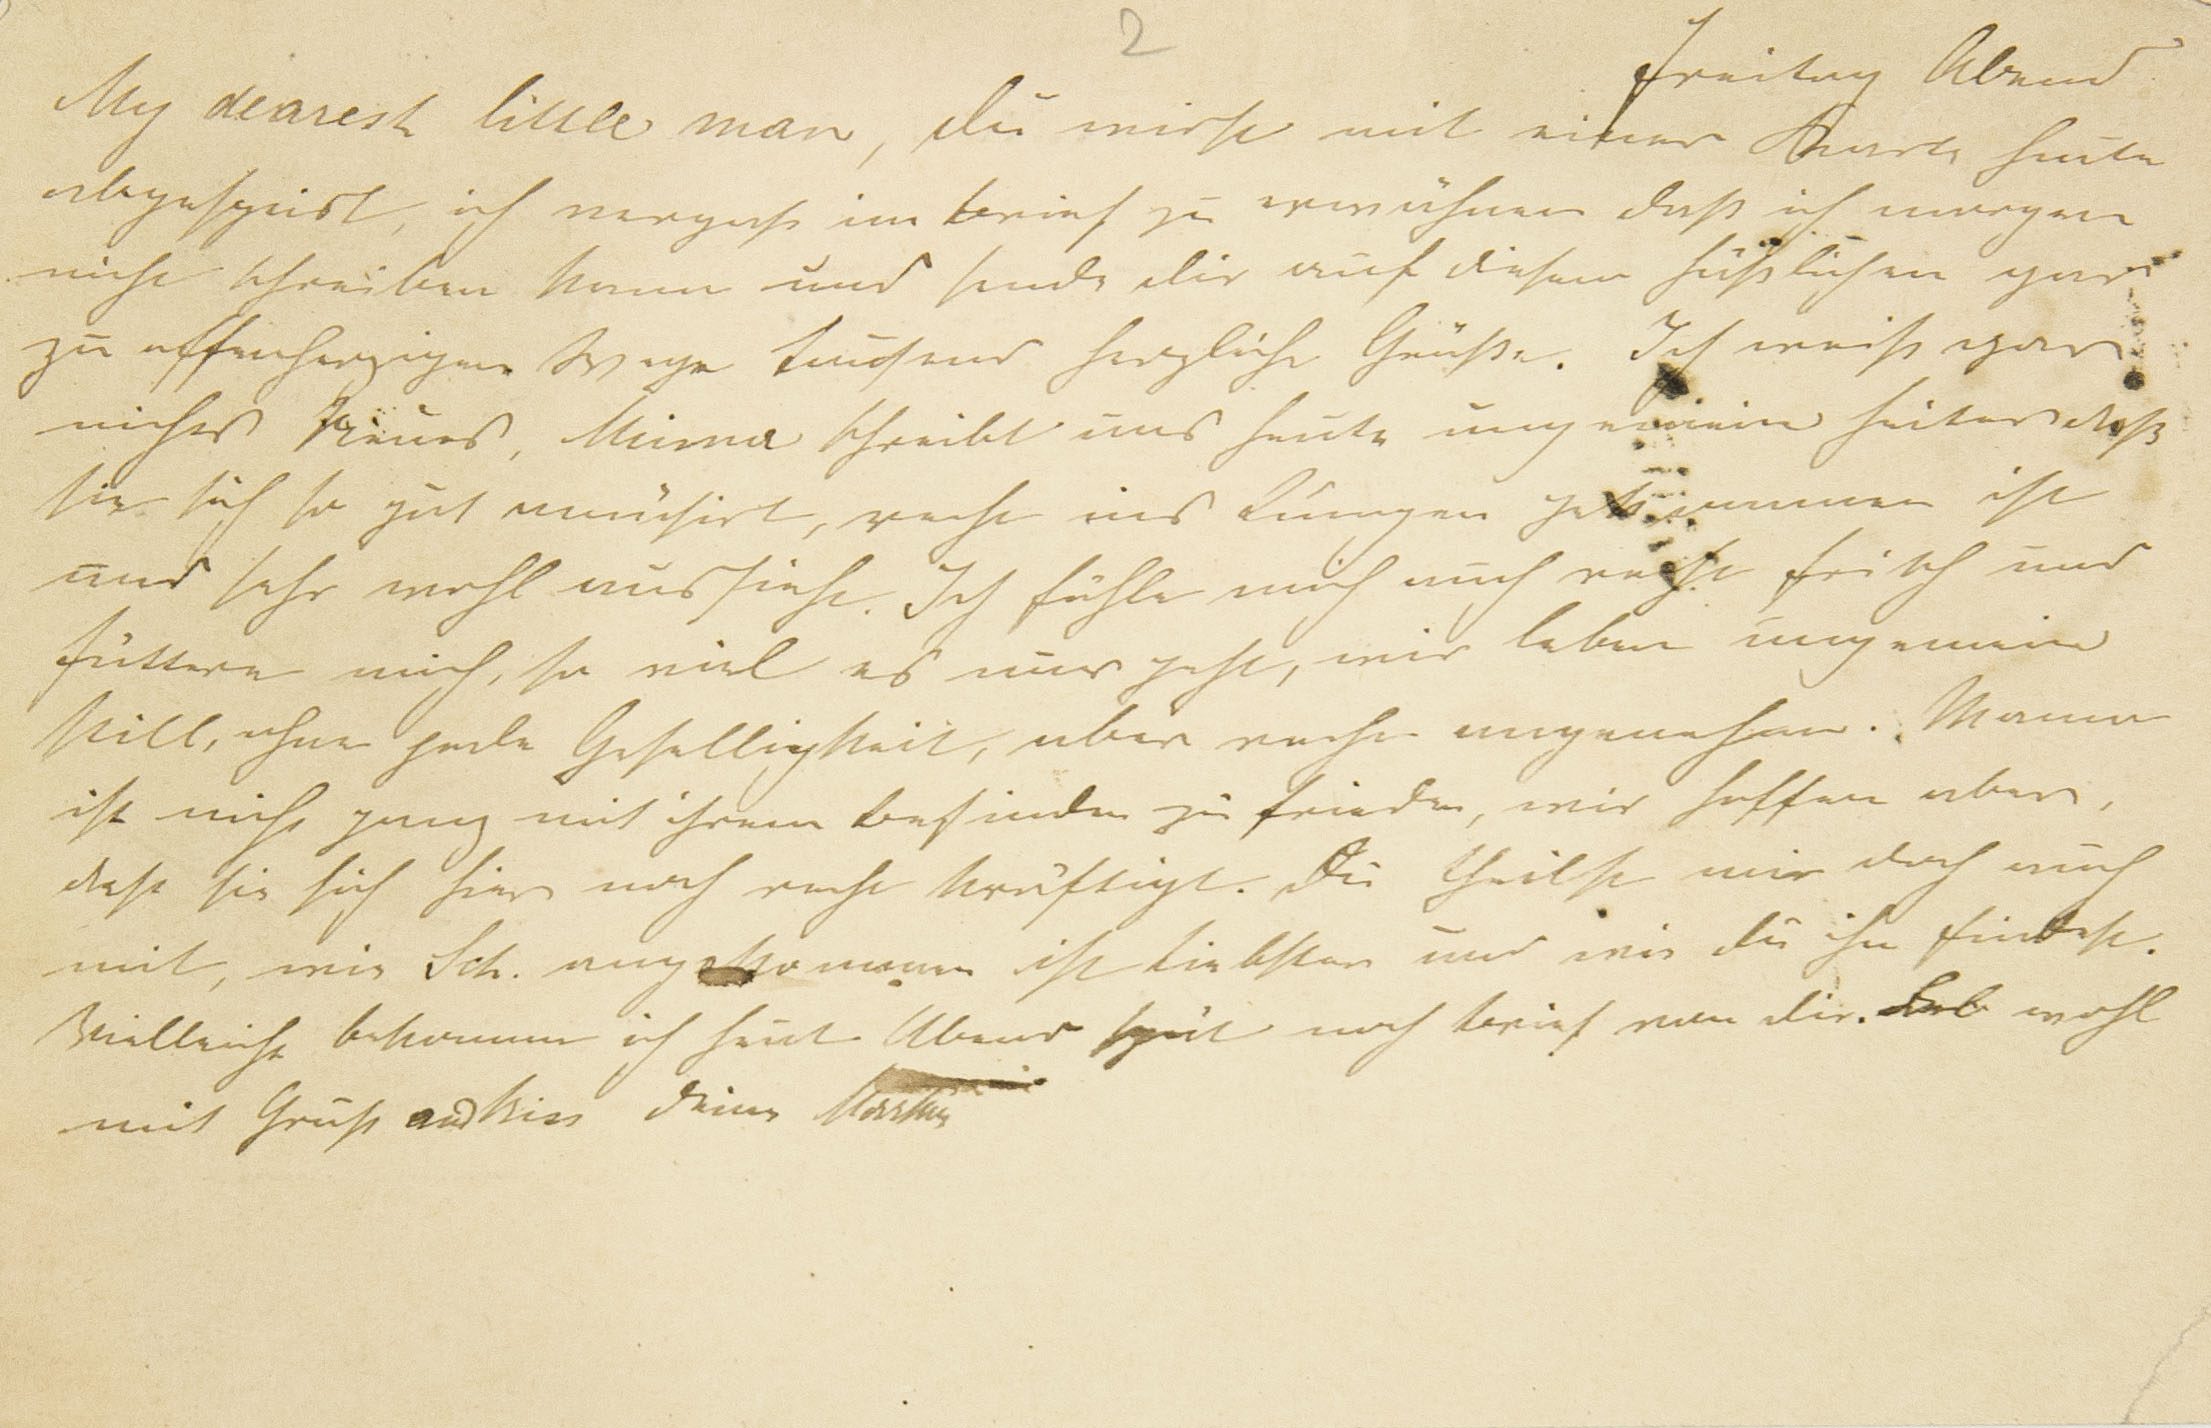 2
Freitag Abend
My dearest little man, du wirst mit einer Karte heute
abgespeist, ich vergaß im Brief zu erwähnen daß ich morgen
nicht schreiben kann und sende dir auf diesem häßlichen gar
zu offenherzigen Wege tausend herzliche Grüße. Ich weiß gar
nichts Neues, Minna schreibt uns heute ungemein heiter daß
sie sich so gut amüsirt, recht ins gekommen ist
und sehr wohl aussieht. Ich fühle mich auch recht frisch und
füttere mich, so viel es nur geht, wir leben ungemein
still, ohne jede Geselligkeit, aber recht angenehm. Mama
ist nicht ganz mit ihrem Befinden zufrieden, wir hoffen aber,
daß sie sich hier noch recht kräftigt. Du theilst mir doch auch
mit, wie Sch. angekommen ist Liebster und wie du ihn findest.
Vielleicht bekomme ich heut Abend spät noch Brief von dir. Leb wohl
mit Gruß and Kiss deine Martha